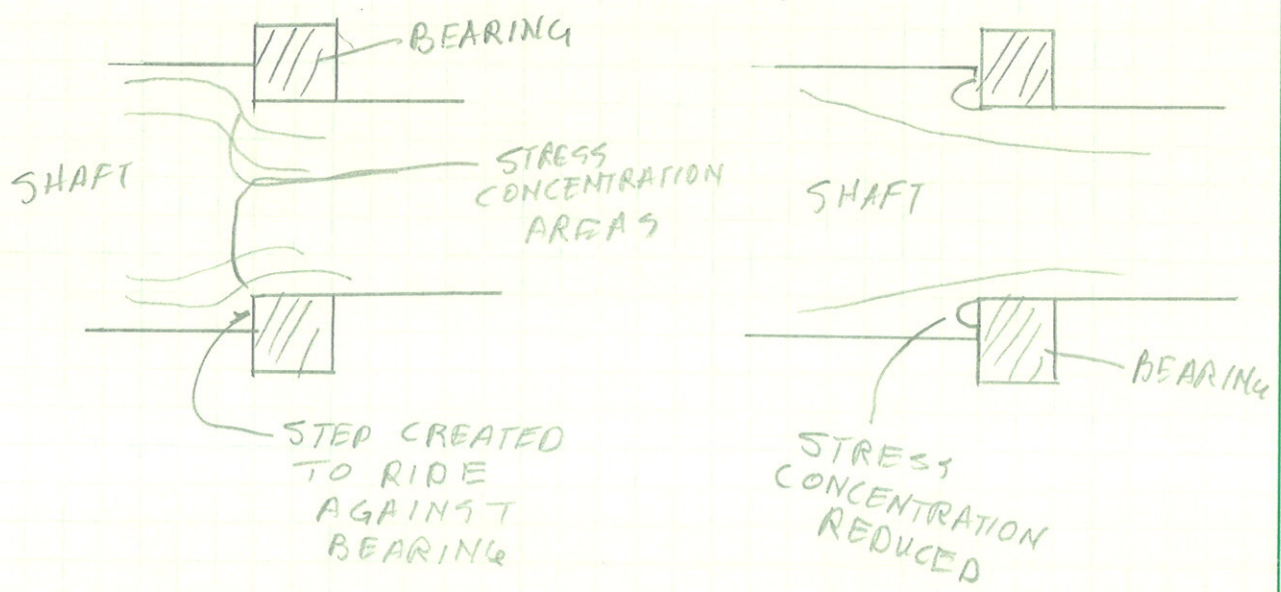 BEARING
SHAFT
STRESS
CONCENTRATION
AREAS
STEP CREATED
TO RIDE
AGAINST
BEARING
SHAFT
BEARING
STRESS
CONCENTRATION
REDUCED